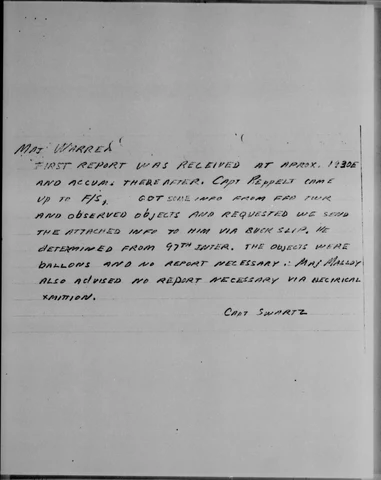 Maj Warren
First report was received at aprox. 1930E
and accum. thereafter. Capt Peppelt came
up to F/S, got some info from FFO twr
and observed objects and requested we send
the attached info to him via buck slip. He
determined from 97th Inter. the objects were
ballons and no report necessary. Maj Malloy
also advised no report necessary via
xmition.
Capt Swartz